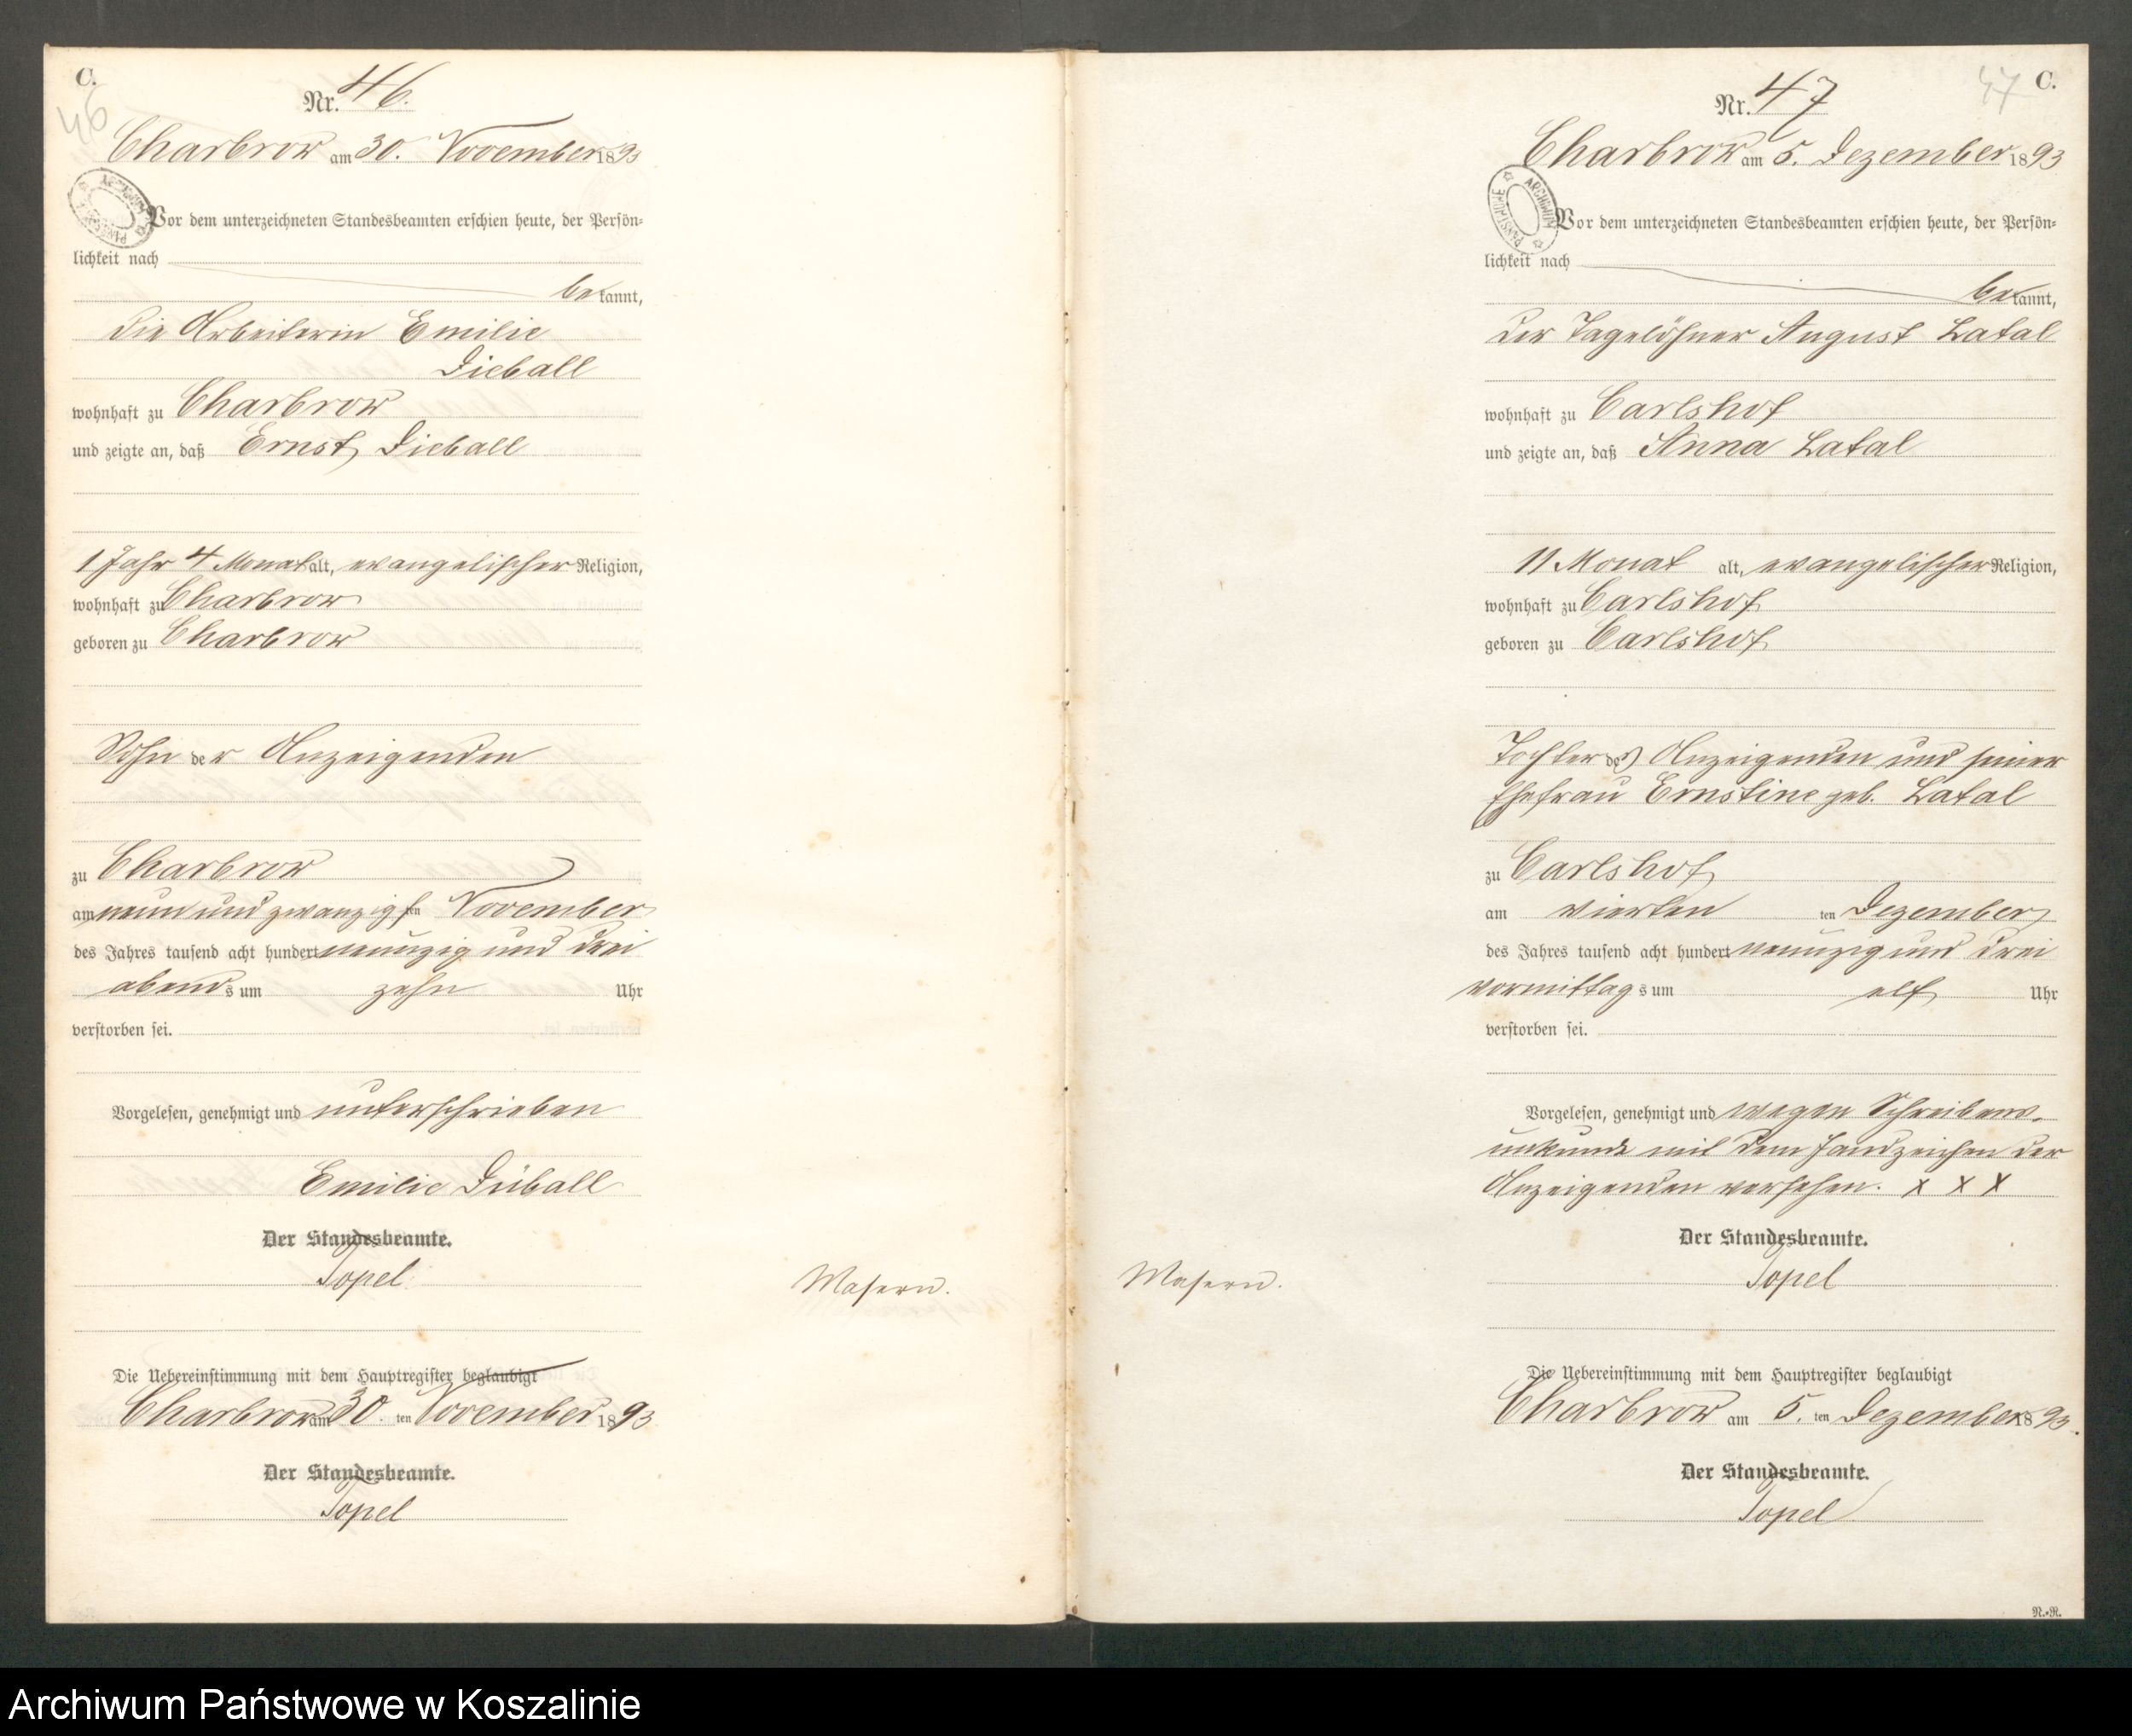 C.
46
Nr. 46.
Charbrow am 30. November 1893
Vor dem unterzeichneten Standesbeamten erschien heute, der Persön-
lichkeit nach
bekannt,
die Arbeiterin Emilie
Dieball
wohnhaft zu Charbrow
und zeigte an, daß Ernst Dieball
1 Jahr 4 Monat alt, evangelischer Religion,
wohnhaft zu Charbrow
geboren zu Charbrow
Sohn der Anzeigenden
zu Charbrow
am neun und zwanzigsten November
des Jahres tausend acht hundert neunzig und drei
abends um zehn Uhr
verstorben sei.
Vorgelesen, genehmigt und unterschrieben
Emilie Düball
Der Standesbeamte.
Topel
Masern.
Die Uebereinstimmung mit dem Hauptregister beglaubigt
Charbrow am 30. ten November 1893
Der Standesbeamte.
Topel
47 C.
Nr. 47
Charbrow am 5. Dezember 1893
ARCHIWUM PAŃSTWOWE
Vor dem unterzeichneten Standesbeamten erschien heute, der Persön-
lichkeit nach
bekannt,
der Tagelöhner August Latal
wohnhaft zu Carlshof
und zeigte an, daß Anna Latal
11 Monat alt, evangelischer Religion,
wohnhaft zu Carlshof
geboren zu Carlshof
Tochter des Anzeigenden und seiner
Ehefrau Ernstine geb. Latal
zu Carlshof
am vierten ten Dezember
des Jahres tausend acht hundert neunzig und drei
vormittags um elf Uhr
verstorben sei.
Vorgelesen, genehmigt und wegen Schreibens-
unkunde mit dem Handzeichen der
Anzeigenden versehen. x x x
Der Standesbeamte.
Topel
Masern.
Die Uebereinstimmung mit dem Hauptregister beglaubigt
Charbrow am 5. ten Dezember 1893.
Der Standesbeamte.
Topel
N.-R.
Archiwum Państwowe w Koszalinie